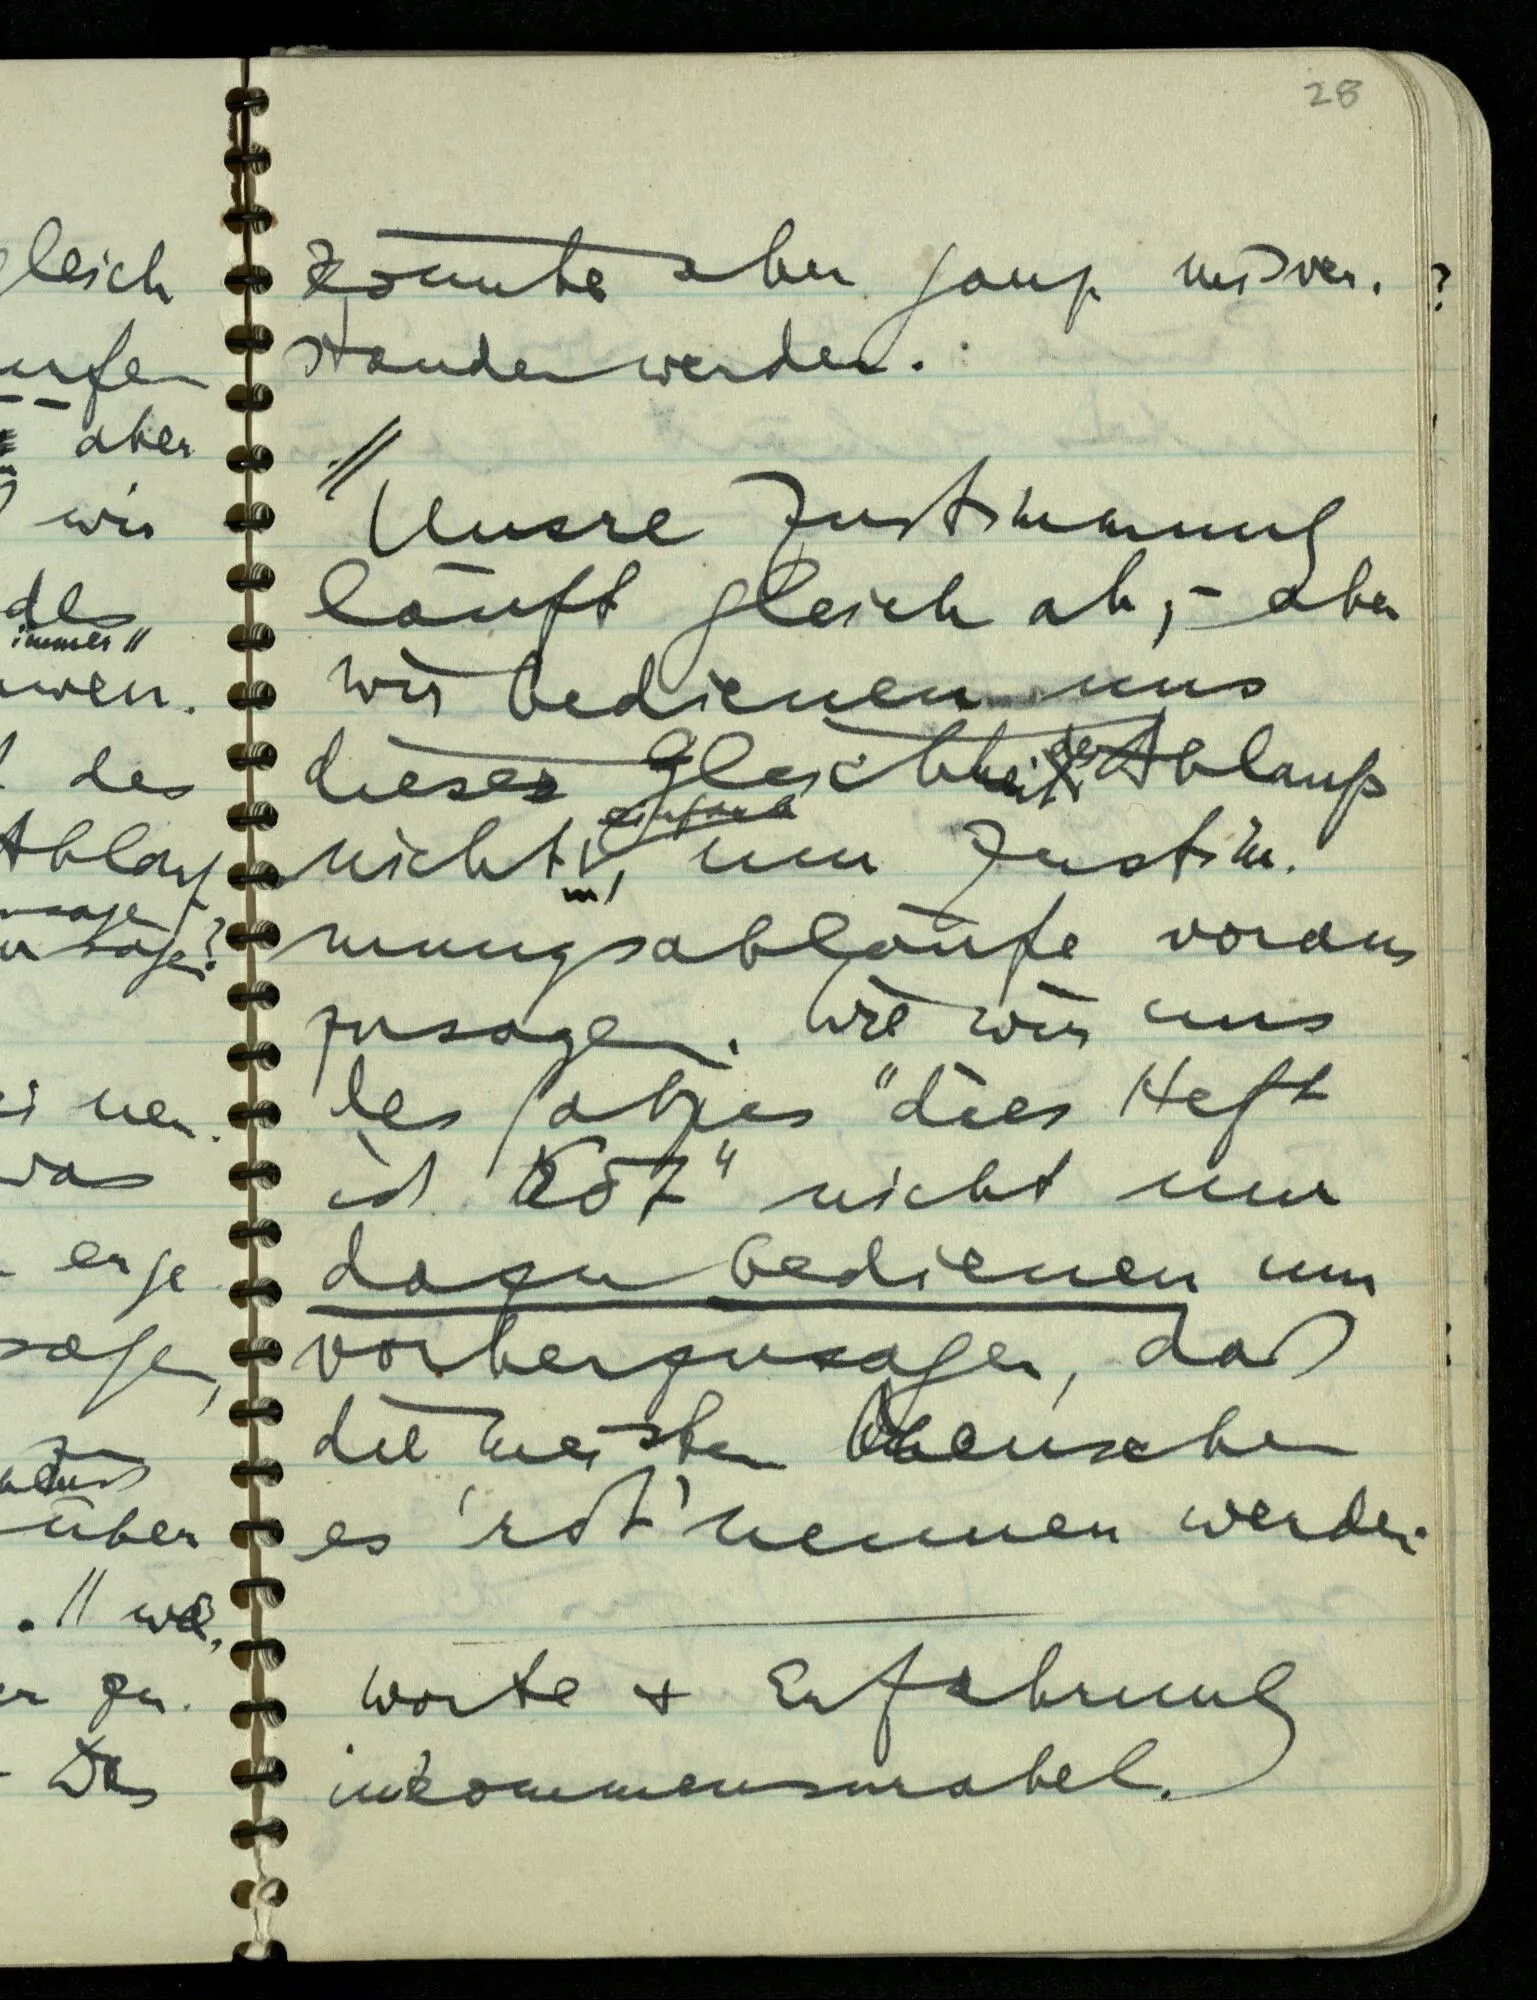 28
gleich
aber
wir
des
immer"
des
Ablauf
was
sagen,
über
Das
könnte aber ganz misver-
standen werden.
?
// Unsre Zustimmung
läuft gleich ab, – aber
wir bedienen uns
dieser Gleichheit des Ablaufs
nicht einfach, um Zustim-
mungsabläufe voraus
zusagen. Wie wir uns
des Satzes "dies Heft
ist rot" nicht nur
dazu bedienen um
vorherzusagen, daß
die meisten Menschen
es 'rot' nennen werden.
Worte & Erfahrung
inkommensurabel.